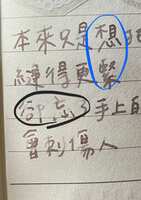 本來只是想
練得更緊
卻忘了手上自
會刺傷人